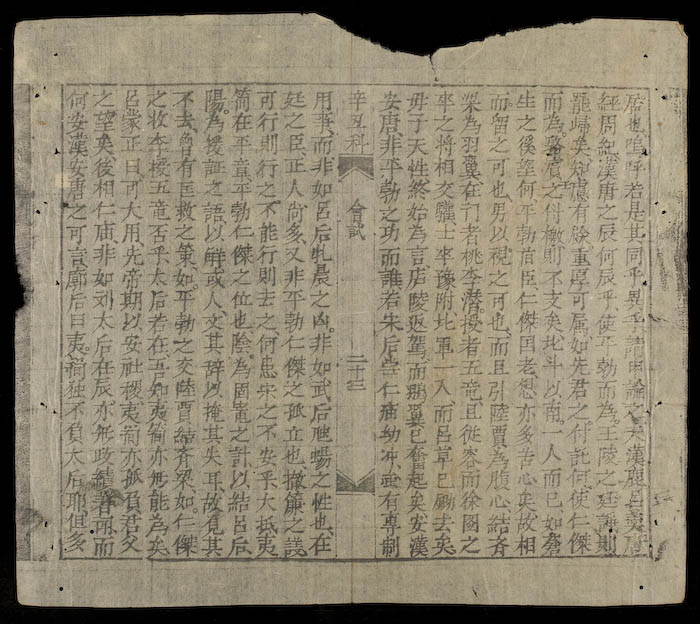 唐也嗚呼若是其同乎異乎請申論之夫漢鹿呂羹唐
經周紀漢唐之辰何辰乎使平勃而為王陵之廷諍則
罷歸矣知慮有餘重厚可属如先君之付託何使仁傑
而為賓之付檄則不支矣北斗以南一人而已如蒼
生之徯望何平勃盾臣仁傑国老想亦多苦心矣故相
而留之可也男以視之可也而且引陸賈為腹心結齐
梁為羽翼在门者桃李潜授者五竜且従容而徐图之
卒之将相交驩士卒豫附北軍一入而呂草已劚去矣
毋子天性終始為言店陵返駕而鵬翼已奮起矣安漢
安唐非平勃之功而誰若宋后當仁庙幼冲虽有專制
辛丑科 會試 二十三
用事而非如呂后牝晨之凶非如武后虺蜴之性也在
廷之臣正人尚多又非平勃仁傑之孤立也撤簾之議
可行則行之不能行則去之何患宋之不安乎大抵夷
简在平章平勃仁傑之位也陰為固竈之計以結呂后
陽為援証之語以觧或人文其辞以掩其失耳故覓其
不去曾有匡救之策如平勃之交陸賈結齐梁如仁傑
之收李授五竜否乎太后若在吾知夷简亦無能為矣
呂蒙正曰可大用先帝期以安社稷夷简亦孤負君父
之望矣後相仁庙非如刘太后在辰亦無政績著聞而
何安漢安唐之可言郭后曰夷简独不負太后耶但多